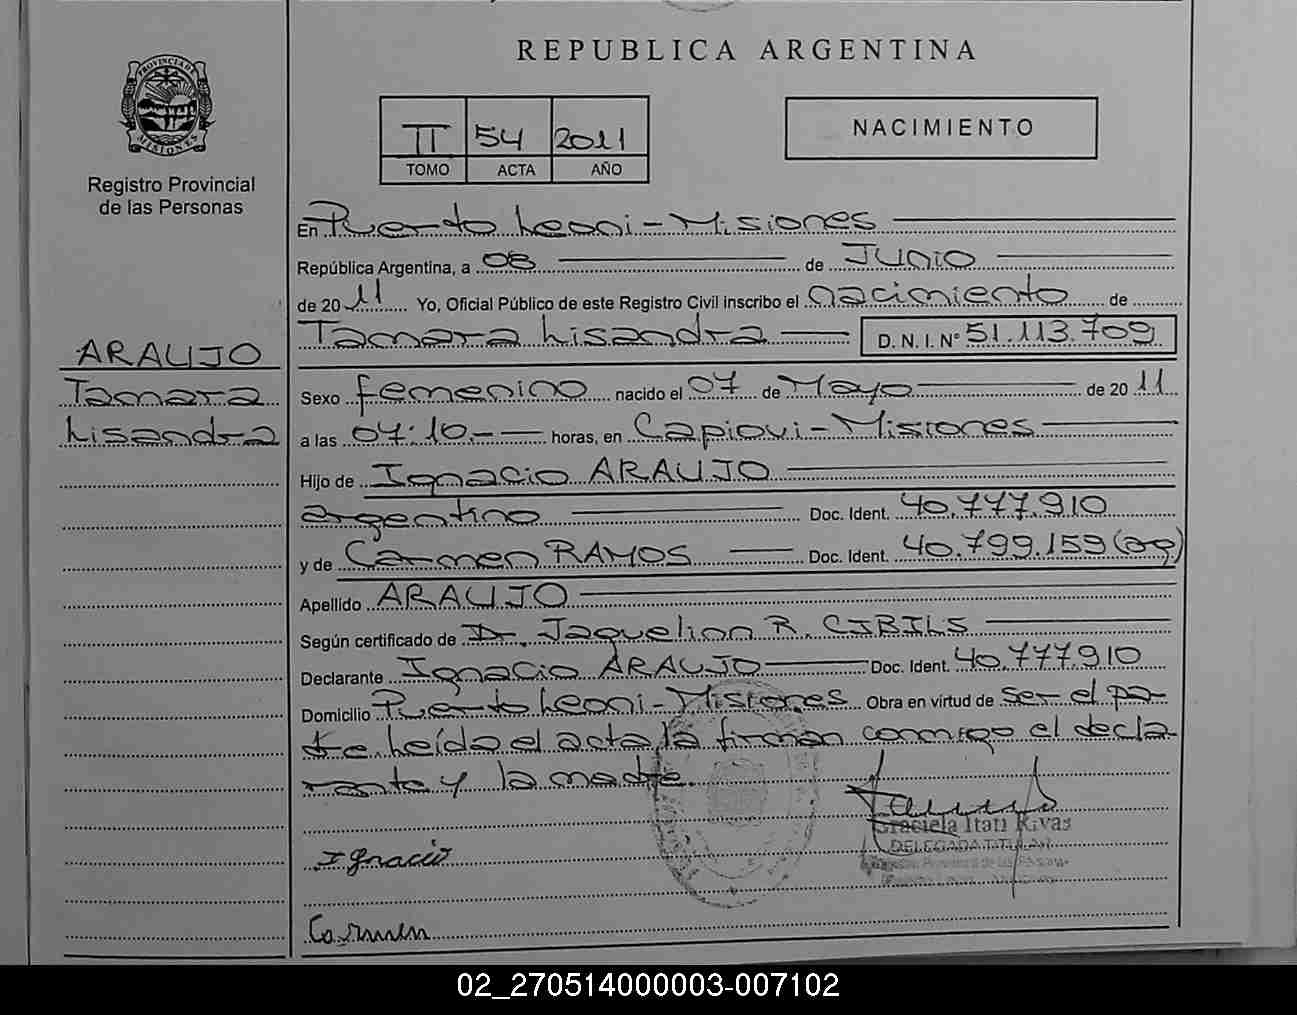 REPUBLICA ARGENTINA
PROVINCIA DE MISIONES
Registro Provincial
de las Personas
II 54 2011
TOMO ACTA AÑO
NACIMIENTO
ARAUJO
Tamara
Lisandra
En Puerto Leoni - Misiones
República Argentina, a 08 de Junio
de 2011 Yo, Oficial Público de este Registro Civil inscribo el nacimiento de
Tamara Lisandra D. N. I. Nº 51.113.709
Sexo femenino nacido el 07 de Mayo de 2011
a las 07:10.- horas, en Capiovi - Misiones
Hijo de Ignacio ARAUJO
argentino Doc. Ident. 40.777.910
y de Carmen RAMOS Doc. Ident. 40.799.159 (arg)
Apellido ARAUJO
Según certificado de Dr. Jaquelinn R. CIBILS
Declarante Ignacio ARAUJO Doc. Ident. 40.777.910
Domicilio Puerto Leoni - Misiones Obra en virtud de ser el pa-
dre. Leída el acta, la firman conmigo el decla-
rante y la madre.
Graciela Itati Rivas
DELEGADA TITULAR
Ignacio
Carmen
02_270514000003-007102